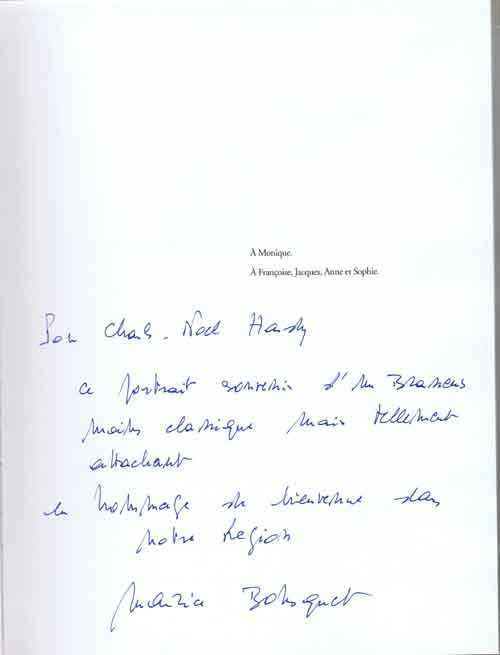 À Monique.
À Françoise, Jacques, Anne et Sophie.
Pour Charles-Noël Hardy
ce portrait souvenir d'un Brassens
moins classique mais tellement
attachant
en hommage de bienvenue dans
notre Région
Maurice Bousquet